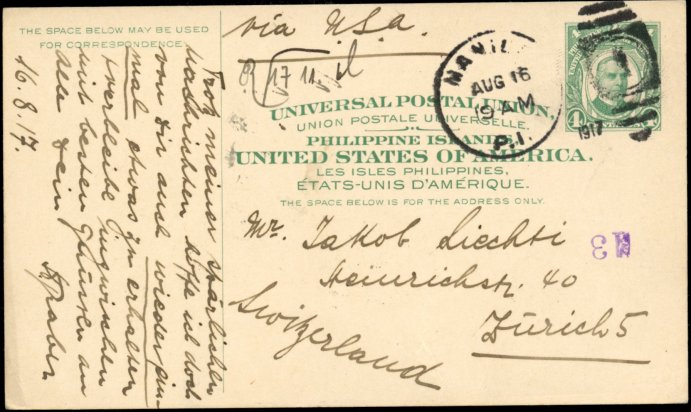 THE SPACE BELOW MAY BE USED
FOR CORRESPONDENCE.
Trotz meiner spärlichen
Nachrichten hoffe ich doch
von Dir auch wieder ein-
mal etwas zu erhalten
& verbleibe inzwischen
mit besten Grüssen an
alle Dein
16.8.17.
via U.S.A.
17 11.
MANILA
AUG 16
9 AM
1917
P.I.
4
UNIVERSAL POSTAL UNION.
UNION POSTALE UNIVERSELLE.
PHILIPPINE ISLANDS
UNITED STATES OF AMERICA.
LES ISLES PHILIPPINES,
ÉTATS-UNIS D'AMÉRIQUE.
THE SPACE BELOW IS FOR THE ADDRESS ONLY.
Mr. Jakob Liechti
Heinrichstr. 40
Zürich 5
Switzerland